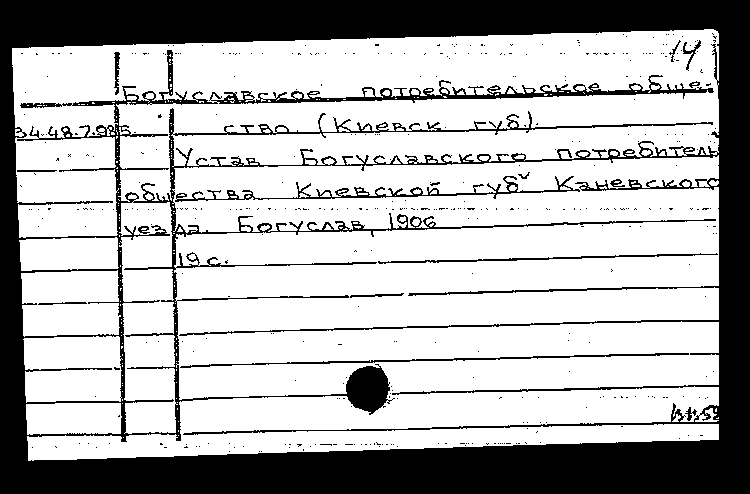 14
Богуславское потребительское обще-
34.48.7.085 ство (Киевск губ).
Устав Богуславского потребитель
общества Киевской губ Каневского
уезда. Богуслав, 1906
19 с.